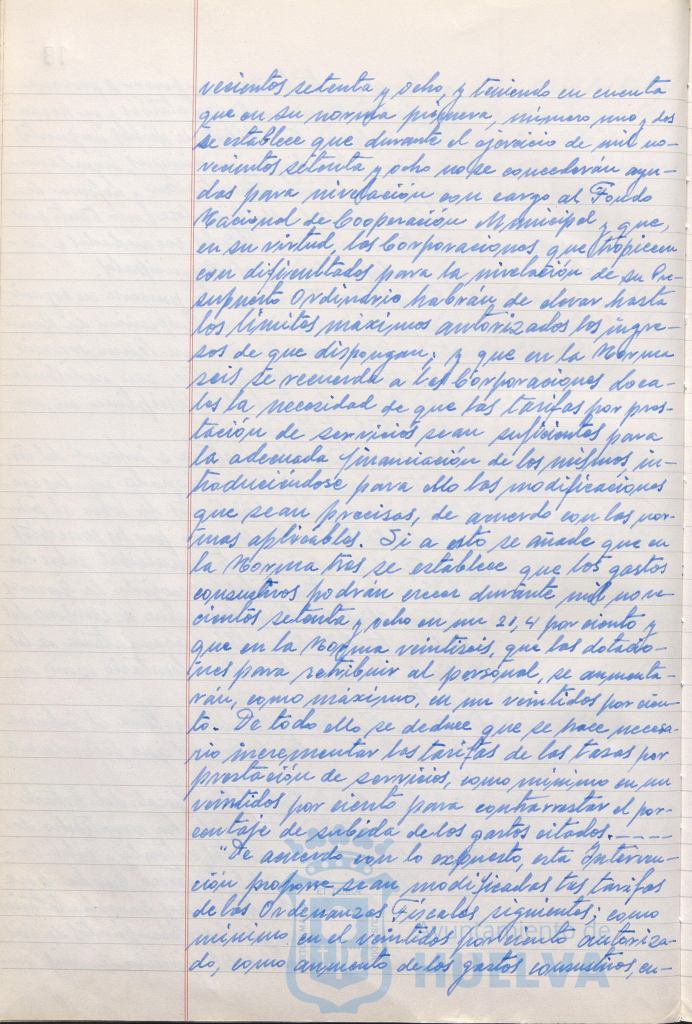 vecientos setenta y ocho, y teniendo en cuenta
que en su norma primera, número uno y dos
se establece que durante el ejercicio de mil no-
vecientos setenta y ocho no se concederán ayu-
das para nivelación con cargo al Fondo
Nacional de Cooperación Municipal y que,
en su virtud, las Corporaciones que tropiecen
con dificultades para la nivelación de su Pre-
supuesto Ordinario habrán de elevar hasta
los límites máximos autorizados los ingre-
sos de que dispongan; y que en la Norma
seis se recuerda a las Corporaciones Loca-
les la necesidad de que las tarifas por pres-
tación de servicios sean suficientes para
la adecuada financiación de los mismos in-
troduciéndose para ello las modificaciones
que sean precisas, de acuerdo con las nor-
mas aplicables. Si a esto se añade que en
la Norma tres se establece que los gastos
consuntivos podrán crecer durante mil nove-
cientos setenta y ocho en un 21,4 por ciento y
que en la Norma veintiseis, que las dotacio-
nes para retribuir al personal, se aumenta-
rán, como máximo, en un veintidos por cien-
to.- De todo ello se deduce que se hace necesa-
rio incrementar las tarifas de las tasas por
prestación de servicios, como mínimo en un
veintidos por ciento para contrarrestar el por-
centaje de subida de los gastos citados.-----
"De acuerdo con lo expuesto, esta Interven-
ción propone sean modificadas las tarifas
de las Ordenanzas Fiscales siguientes; como
mínimo en el veintidos por ciento autoriza-
do, como aumento de los gastos consuntivos, en-
Ayuntamiento de
HUELVA
13